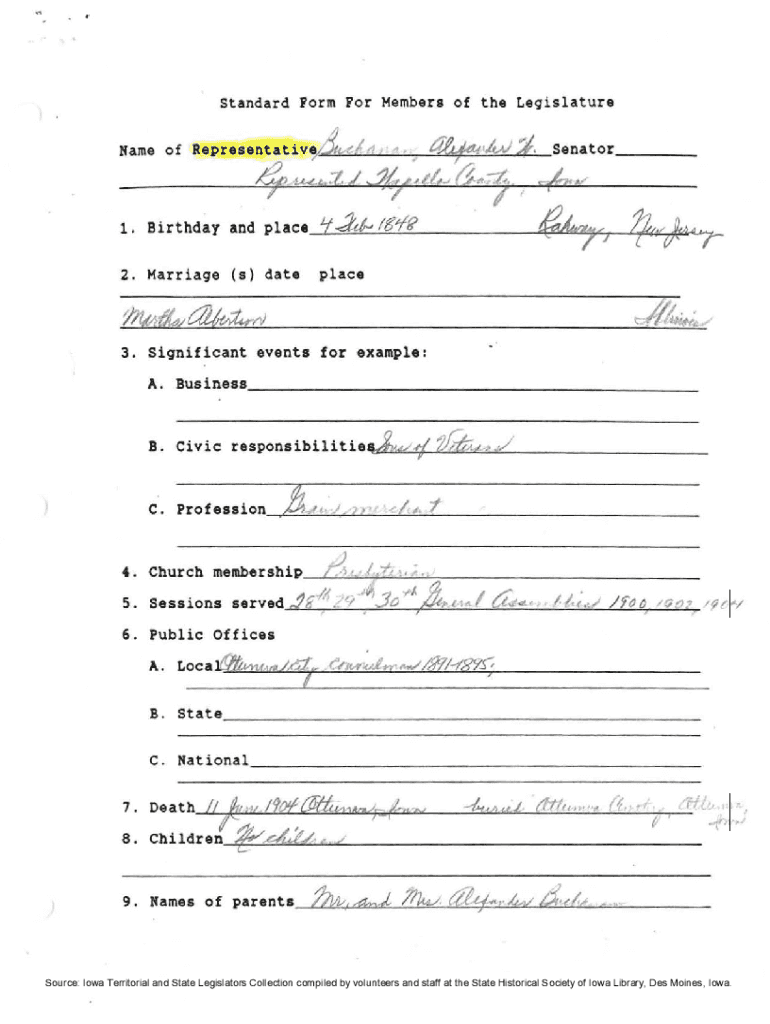 Standard Form For Members of the Legislature
Name of Representative Buchanan, Alexander W. Senator
Represented Wapello County, Iowa
1. Birthday and place 4 Feb 1848 Rahway, New Jersey
2. Marriage (s) date place
Martha Albertson Illinois
3. Significant events for example:
A. Business
B. Civic responsibilities Sons of Veterans
C. Profession Grain merchant
4. Church membership Presbyterian
5. Sessions served 28th, 29th, 30th General Assemblies 1900, 1902, 1904
6. Public Offices
A. Local Ottumwa City Councilman 1891-1895;
B. State
C. National
7. Death 11 1904 Ottumwa, Iowa buried Ottumwa Cemetery, Ottumwa,
Iowa
8. Children No children
9. Names of parents Mr. and Mrs. Alexander Buchanan
Source: Iowa Territorial and State Legislators Collection compiled by volunteers and staff at the State Historical Society of Iowa Library, Des Moines, Iowa.